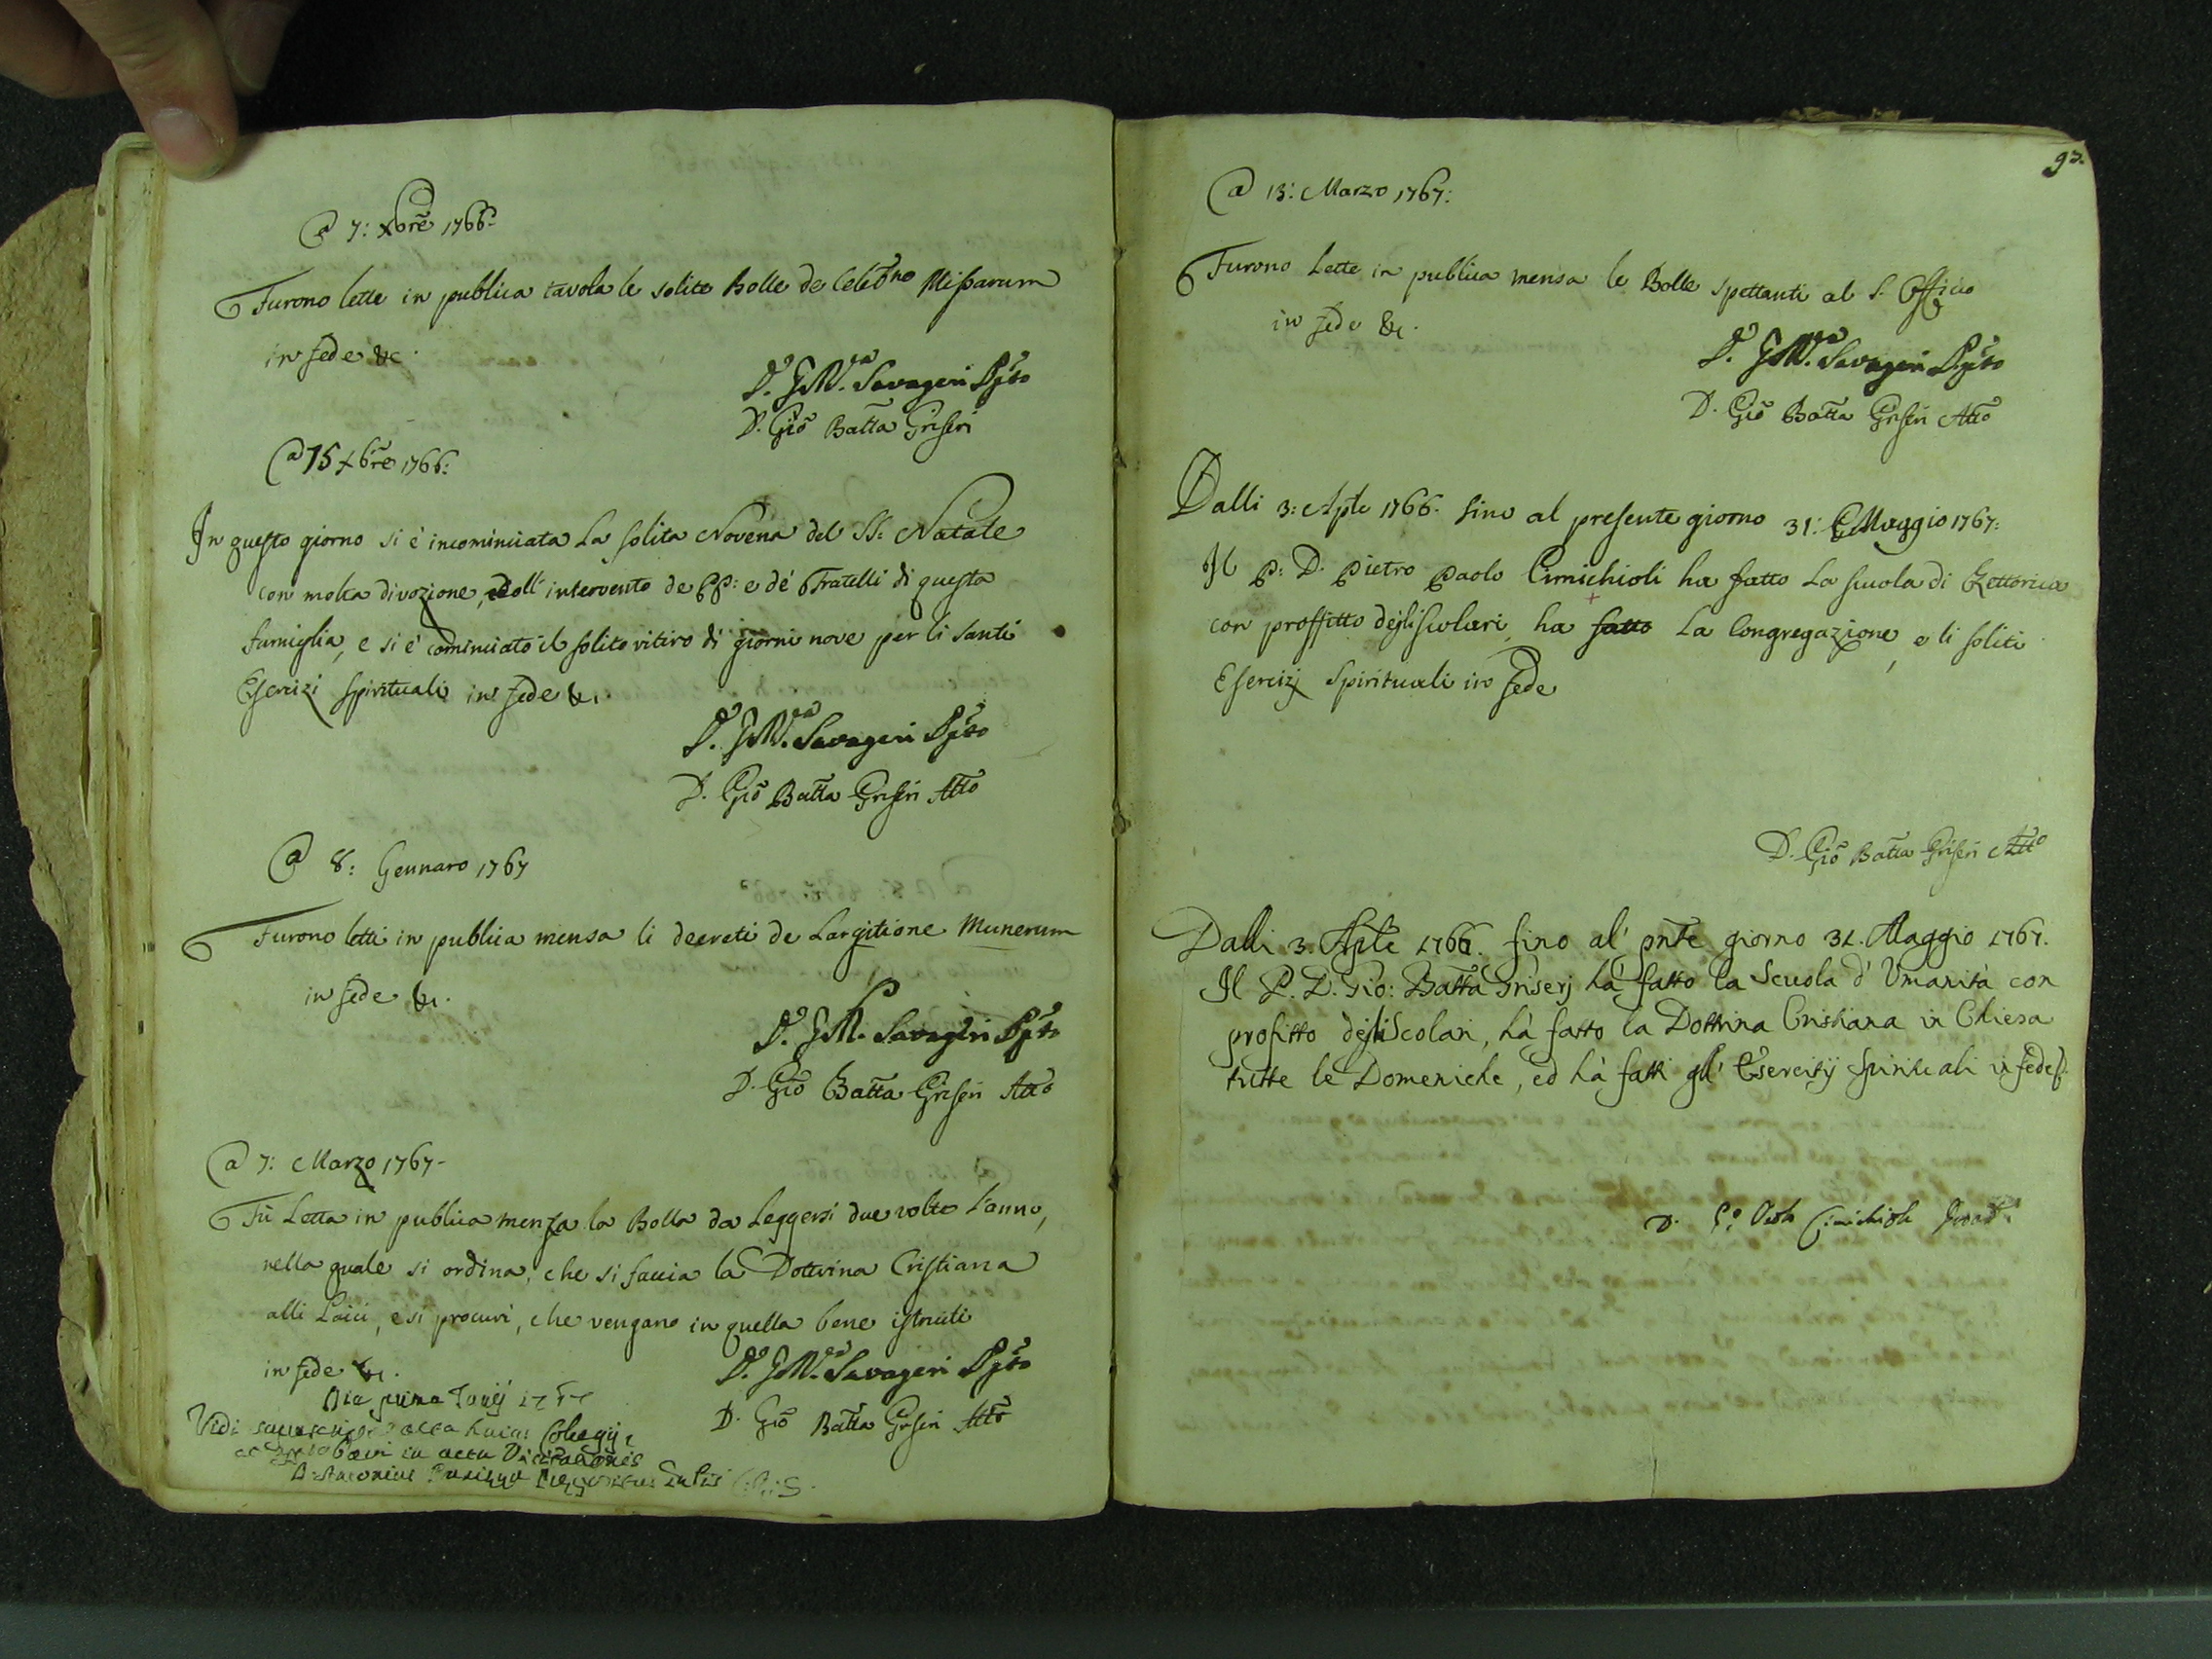 A 7: Xbrē 1766.
Furono lette in publica tavola le solite Bolle de Celebne Missarum
in fede &c.
D. G. M.ra Savageri Pp̄to
D. Giō Batta Griseri
A 15 Xbre 1766:
In questo giorno si è incominciata La solita Novena del SS: Natale
con molta divozione, coll' intervento de PP: e de' Fratelli di questa
famiglia, e si è cominciato il solito ritiro di giorni nove per li santi
Esercizi Spirituali in fede &c.
D. G. M.ra Savageri Pp̄to
D. Giō Batta Griseri Atto
A 8: Gennaro 1767
Furono letti in publica mensa li decreti de Largitione Munerum
in fede &c.
D. G. M. Savageri Pp̄to
D. Giō Batta Griseri Atto
A 7: Marzo 1767.
Fù Letta in publica menza la Bolla da Leggersi due volte l'anno,
nella quale si ordina, che si faccia la Dottrina Cristiana
alli Laici, e si procuri, che vengano in quella bene istruiti
in fede &c.
D. G. M.ra Savageri Pp̄to
D. Giō Batta Griseri Atto
Die prima Junij
Vidi acta huius Collegij,
ac in actu Visitationis
93.
A 13: Marzo 1767:
Furono Lette in publica mensa le Bolle spettanti al S. Officio
in fede &c.
D. G. M.ra Savageri Pp̄to
D. Giō Batta Griseri Atto
Dalli 3: Aple 1766. sino al presente giorno 31: Maggio 1767:
Il P: D. Pietro Paolo Cimichioli ha fatto La scuola di Rettorica
con proffitto degli scolari, ha fatto La Congregazione, e li soliti
Esercizj Spirituali in fede
D. Giō Batta Griseri Atto
Dalli 3. Aple 1766. sino al' pn̄te giorno 31. Maggio 1767.
Il P. D. Gio: Batta Griserj hà fatto la Scuola d' Umanità con
profitto degli Scolari, hà fatto la Dottrina Cristiana in Chiesa
tutte le Domeniche, ed hà fatti gli Esercitij Spirituali in fede
D. Po Paolo Cimichioli